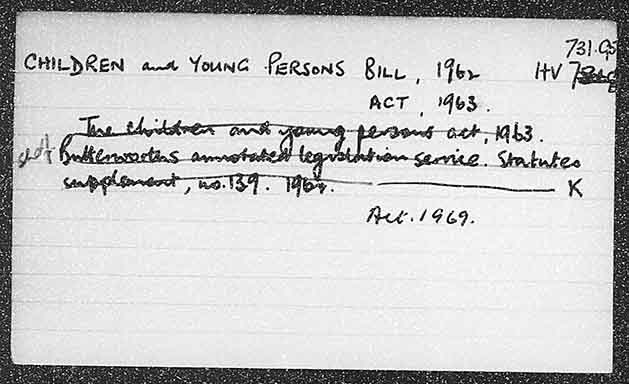 731.G5
CHILDREN and YOUNG PERSONS BILL, 1962 HV
ACT, 1963.
The children and young persons act, 1963.
Butterworths annotated legislation service. Statutes
supplement, no. 139. 1964. K
Act. 1969.